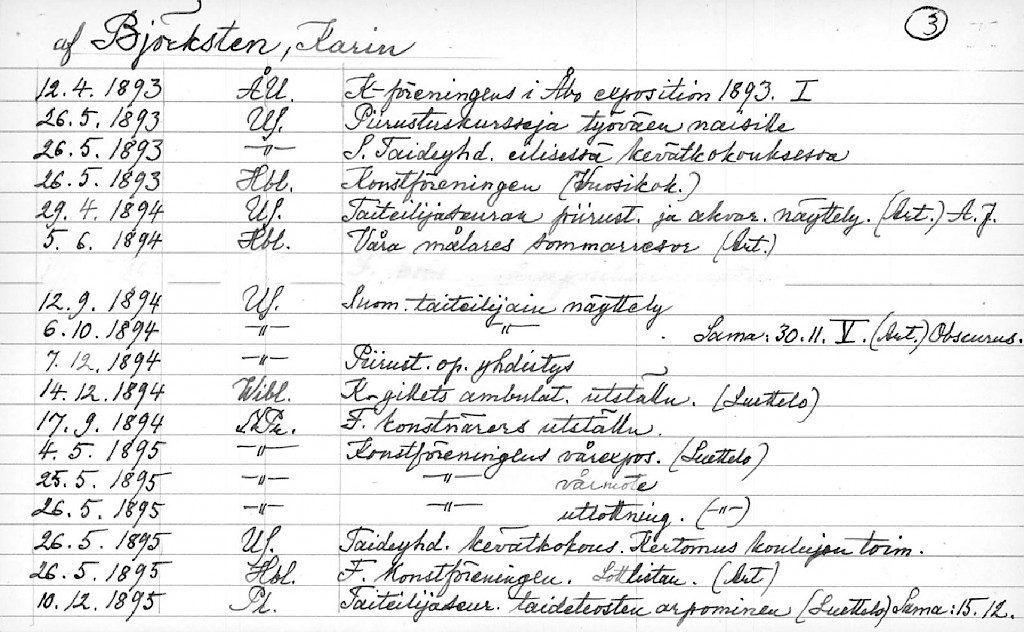 3
af Björksten, Karin
12.4. 1893 ÅU. K-föreningens i Åbo exposition 1893. I
26.5. 1893 US. Piirustuskursseja työväen naisille
26.5. 1893 -"- S. Taideyhd. eilisessä kevätkokouksessa
26.5. 1893 Hbl. Konstföreningen (Vuosikok.)
29.4. 1894 US. Taiteilijaseuran piirust. ja akvar. näyttely. (Art.) A.J.
5.6. 1894 Hbl. Våra målares sommarresor (Art.)
12.9. 1894 US. Suom. taiteilijain näyttely
6.10. 1894 -"- -"- . Sama: 30.11. V. (Art.) Obscurus.
7.12. 1894 -"- Piirust. op. yhdistys
14.12. 1894 Wibl. K-gillets ambulat. utställn. (Luettelo)
17.9. 1894 N.Pr. F. konstnärers utställn.
4.5. 1895 -"- Konstföreningens vårexpos. (Luettelo)
25.5. 1895 -"- -"- vårmöte
26.5. 1895 -"- -"- utlottning. (-"-)
26.5. 1895 US. Taideyhd. kevätkokous. Kertomus koulujen toim.
26.5. 1895 Hbl. F. Konstföreningen. Lottlistan. (Art)
10.12. 1895 Pl. Taiteilijaseur. taideteosten arpominen (Luettelo) Sama: 15.12.